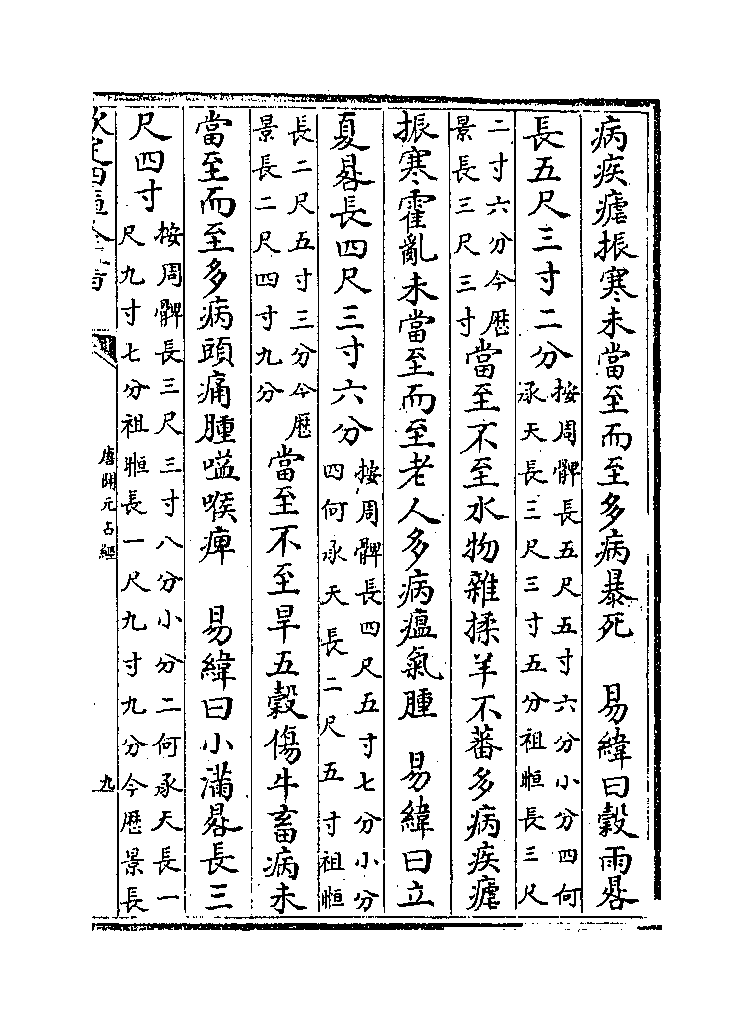 病疾瘧振寒未當至而至多病暴死　易緯曰穀雨晷
長五尺三寸二分
按周髀長五尺五寸六分小分四何
承天長三尺三寸五分祖暅長三尺
二寸六分今歴
景長三尺三寸
當至不至水物雜揉羊不蕃多病疾瘧
振寒霍亂未當至而至老人多病瘟氣腫　易緯曰立
夏晷長四尺三寸六分
按周髀長四尺五寸七分小分
四何承天長二尺五寸祖暅
長二尺五寸三分今歴
景長二尺四寸九分
當至不至旱五穀傷牛畜病未
當至而至多病頭痛腫嗌喉痺　易緯曰小滿晷長三
尺四寸
按周髀長三尺三寸八分小分二何承天長一
尺九寸七分祖暅長一尺九寸九分今歴景長
欽定四庫全書
唐開元占經
九